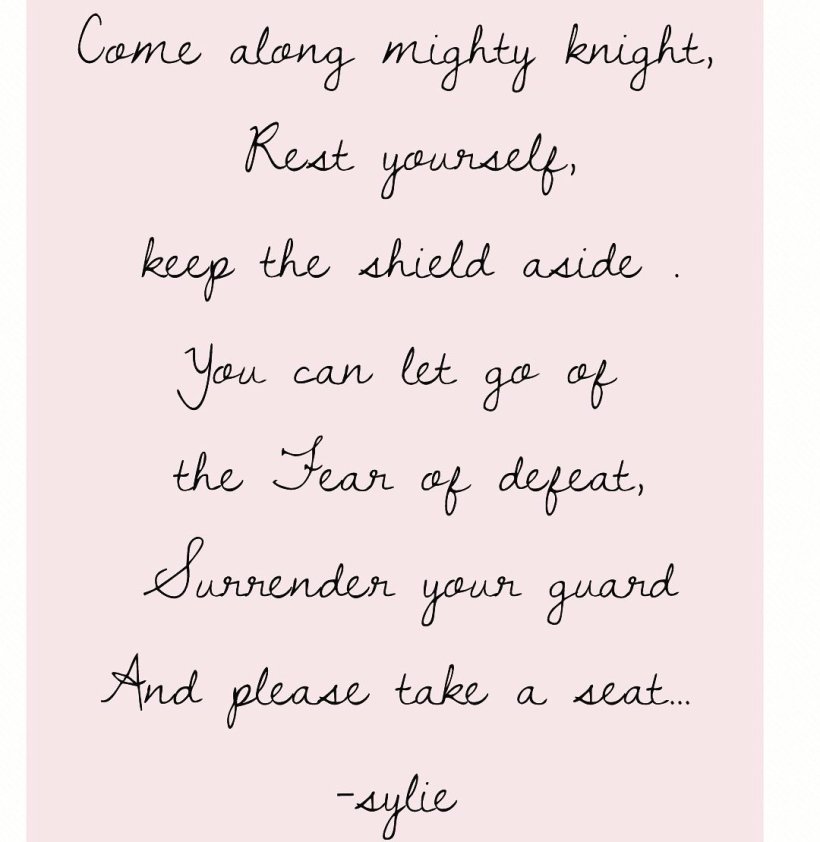 Come along mighty knight,
Rest yourself,
keep the shield aside .
You can let go of
the Fear of defeat,
Surrender your guard
And please take a seat...
-sylie